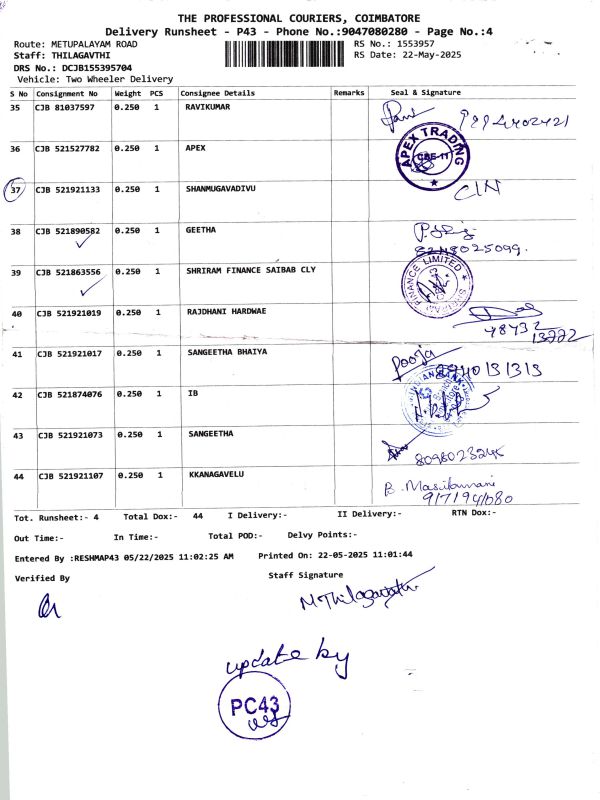 THE PROFESSIONAL COURIERS, COIMBATORE
Delivery Runsheet - P43 - Phone No.:9047080280 - Page No.:4
Route: METUPALAYAM ROAD RS No.: 1553957
Staff: THILAGAVTHI RS Date: 22-May-2025
DRS No.: DCJB155395704
Vehicle: Two Wheeler Delivery
S No Consignment No Weight PCS Consignee Details Remarks Seal & Signature
35 CJB 81037597 0.250 1 RAVIKUMAR
36 CJB 521527782 0.250 1 APEX APEX TRADING CBE-11
37 CJB 521921133 0.250 1 SHANMUGAVADIVU CIN
38 CJB 521890582 0.250 1 GEETHA
8248025099.
39 CJB 521863556 0.250 1 SHRIRAM FINANCE SAIBAB CLY SHRIRAM FINANCE LIMITED
40 CJB 521921019 0.250 1 RAJDHANI HARDWAE
78732
13772
41 CJB 521921017 0.250 1 SANGEETHA BHAIYA Pooja
42 CJB 521874076 0.250 1 IB INDIAN BANK
43 CJB 521921073 0.250 1 SANGEETHA
8098023245
44 CJB 521921107 0.250 1 KKANAGAVELU B. Masilamani
Tot. Runsheet:- 4 Total Dox:- 44 I Delivery:- II Delivery:- RTN Dox:-
Out Time:- In Time:- Total POD:- Delvy Points:-
Entered By :RESHMAP43 05/22/2025 11:02:25 AM Printed On: 22-05-2025 11:01:44
Verified By Staff Signature
M Thilagavathi
update by
PC43